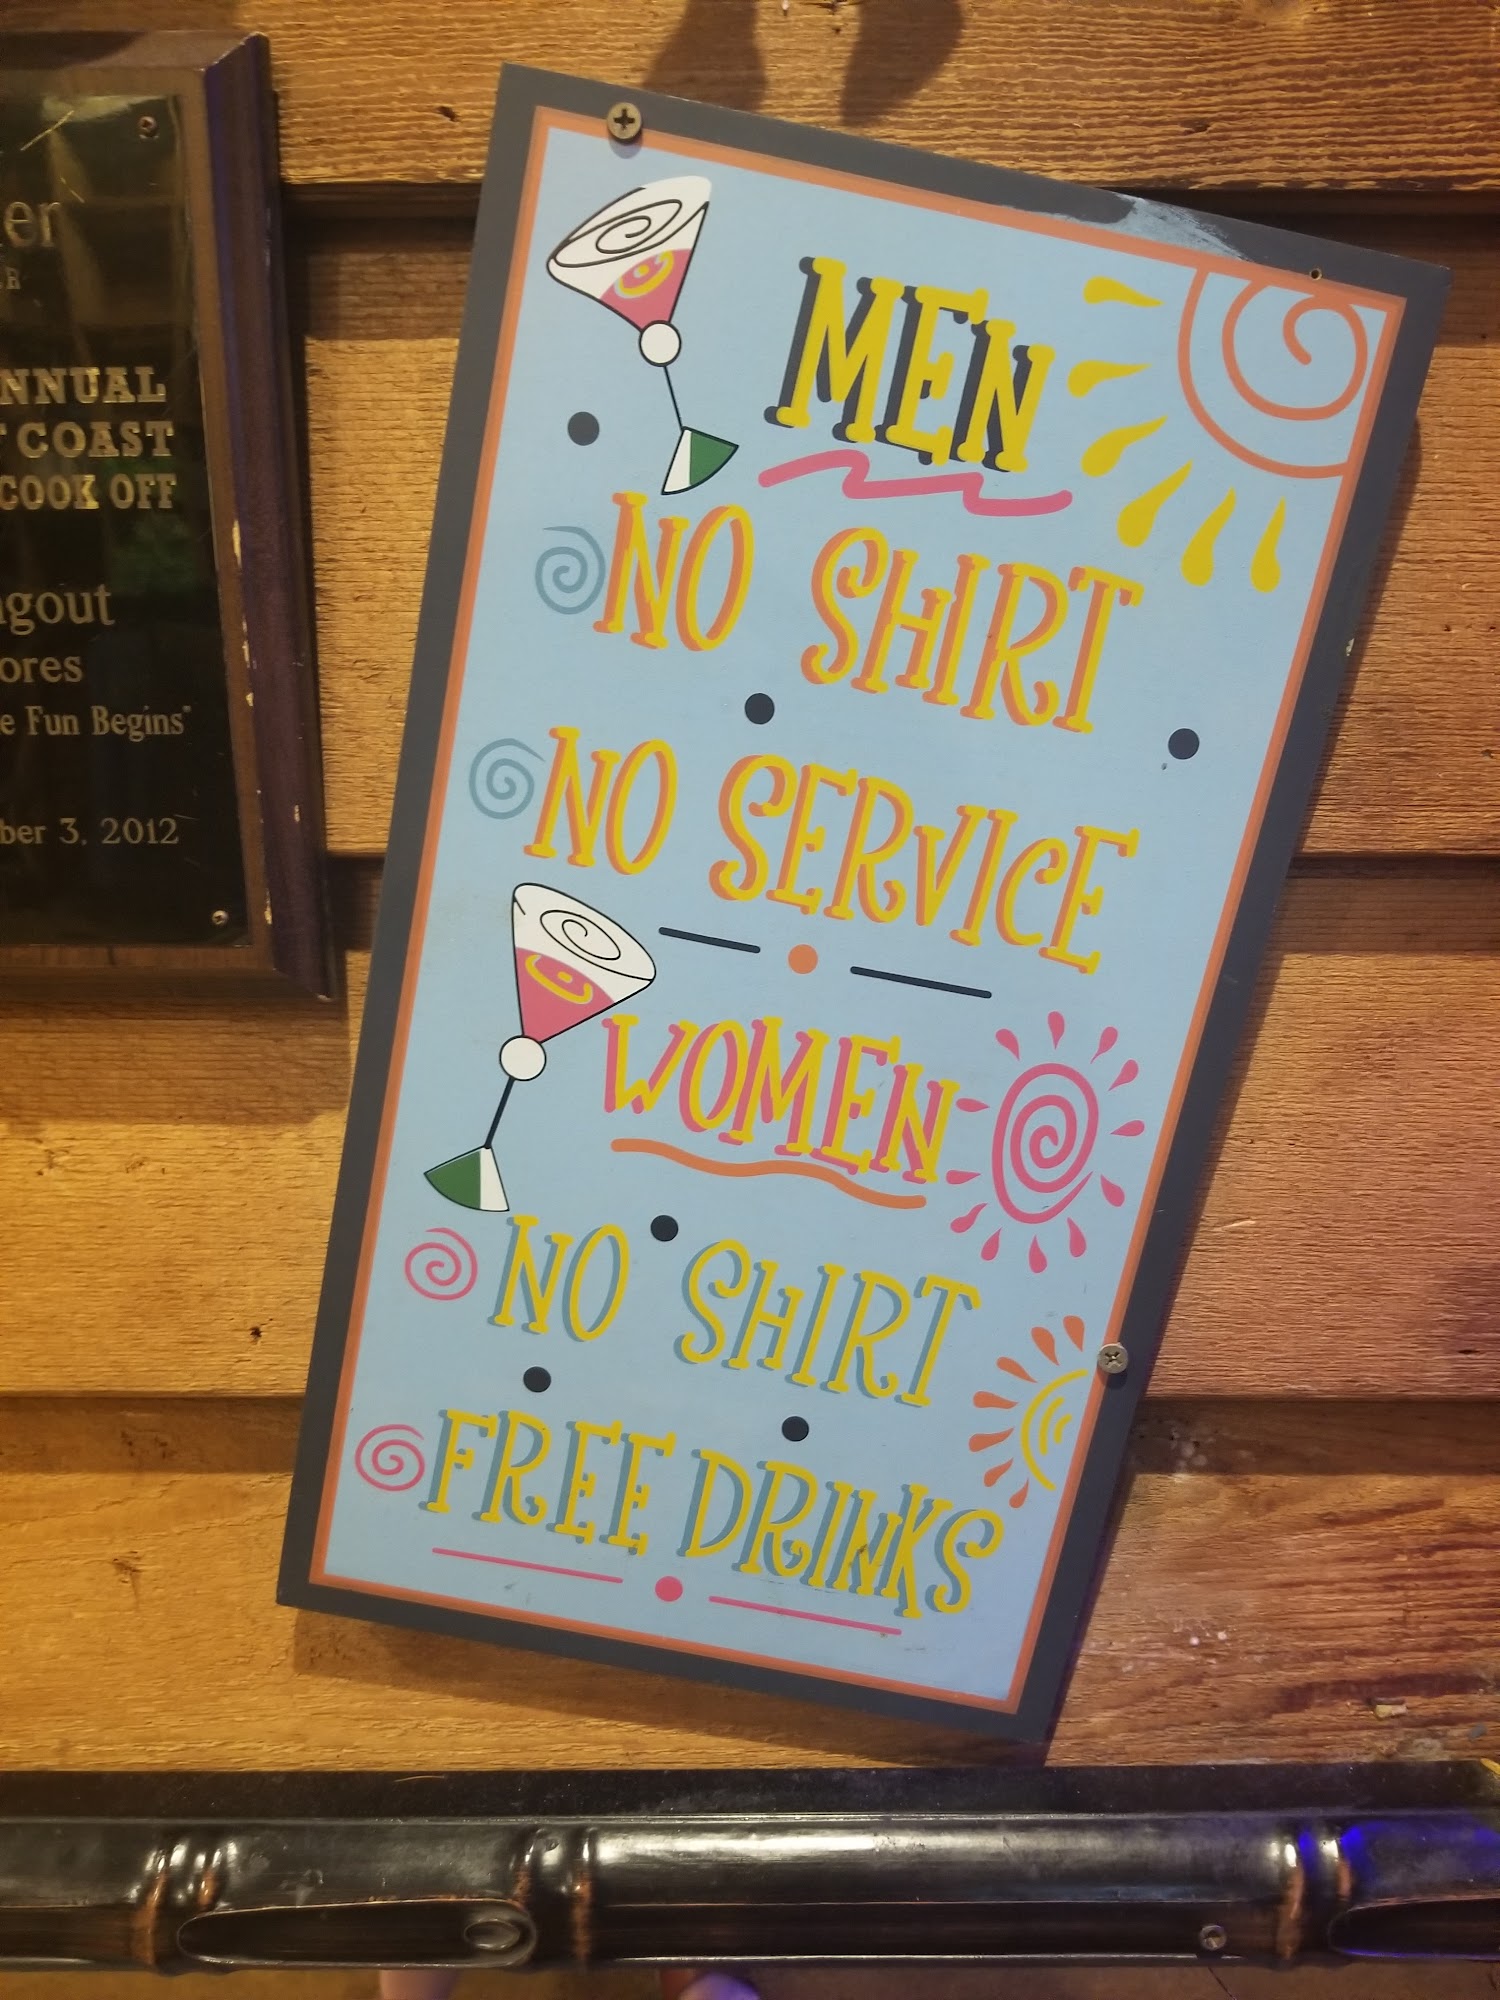 ANNUAL
COAST
COOK OFF
Fun Begins"
3, 2012
MEN
NO SHIRT
NO SERVICE
WOMEN
NO SHIRT
FREE DRINKS